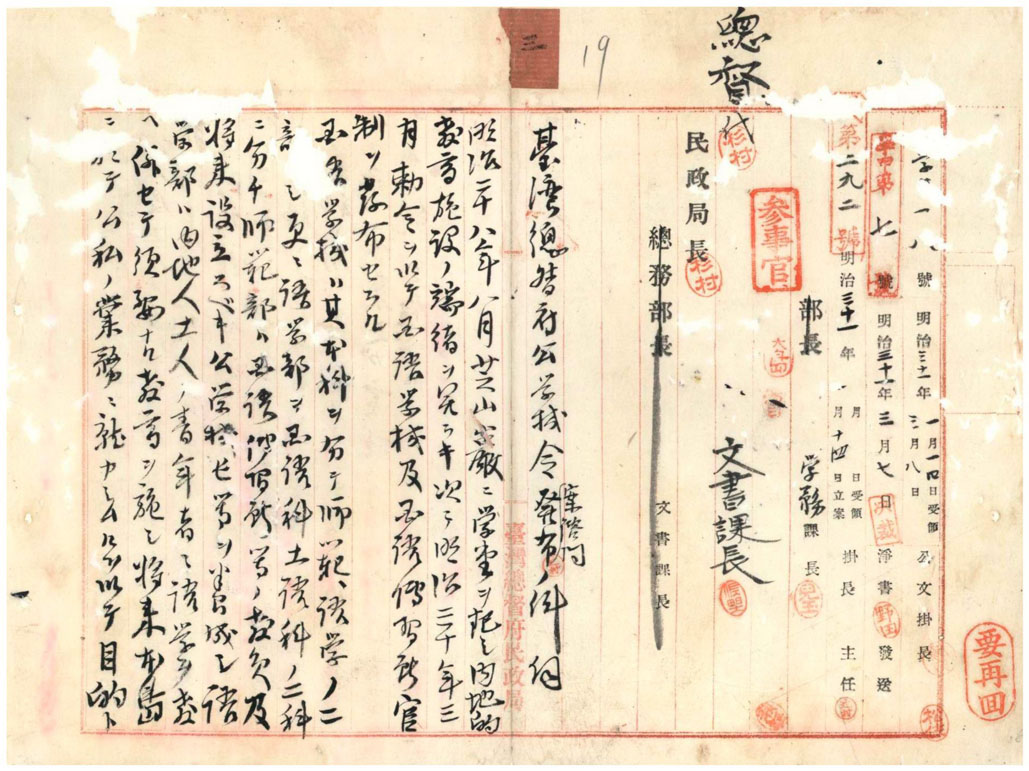 三
19
總督
代
杉村
第一八號 明治三二年一月一四日受領 公文掛長
学甲第七號 明治三十一年三月七日 淨書 野田 發送
三月八日
第二九二號 明治三十一年 月 日受領
月十四日立案 掛長 主任
部長 学務課長 児玉
参事官
文書課長
民政局長 杉村
總務部長 文書課長
臺湾總督府公学校令発布ノ件伺
案諮問
明治二十八年八月芝山巌ニ学堂ヲ起シ内地的
教育施設ノ端緒ヲ究ラキ次テ明治三十年三
月勅令ヲ以テ国語学校及国語傳習所官
制ヲ發布セラル
国語学校ハ其本科ヲ分テ師範、語学ノ二
部トシ更ニ語学部ヲ国語科土語科ノ二科
ニ分チ師範部ハ国語傳習所等ノ教員及
将来設立スベキ公学校長等ヲ養成シ語
学部ハ内地人土人ノ青年者ニ語学ヲ教
ヘ併セテ須要ナル教育ヲ施シ将来本島
ニ於テ公私ノ業務ニ就カシムルヲ以テ目的ト
臺灣總督府民政局
要再回